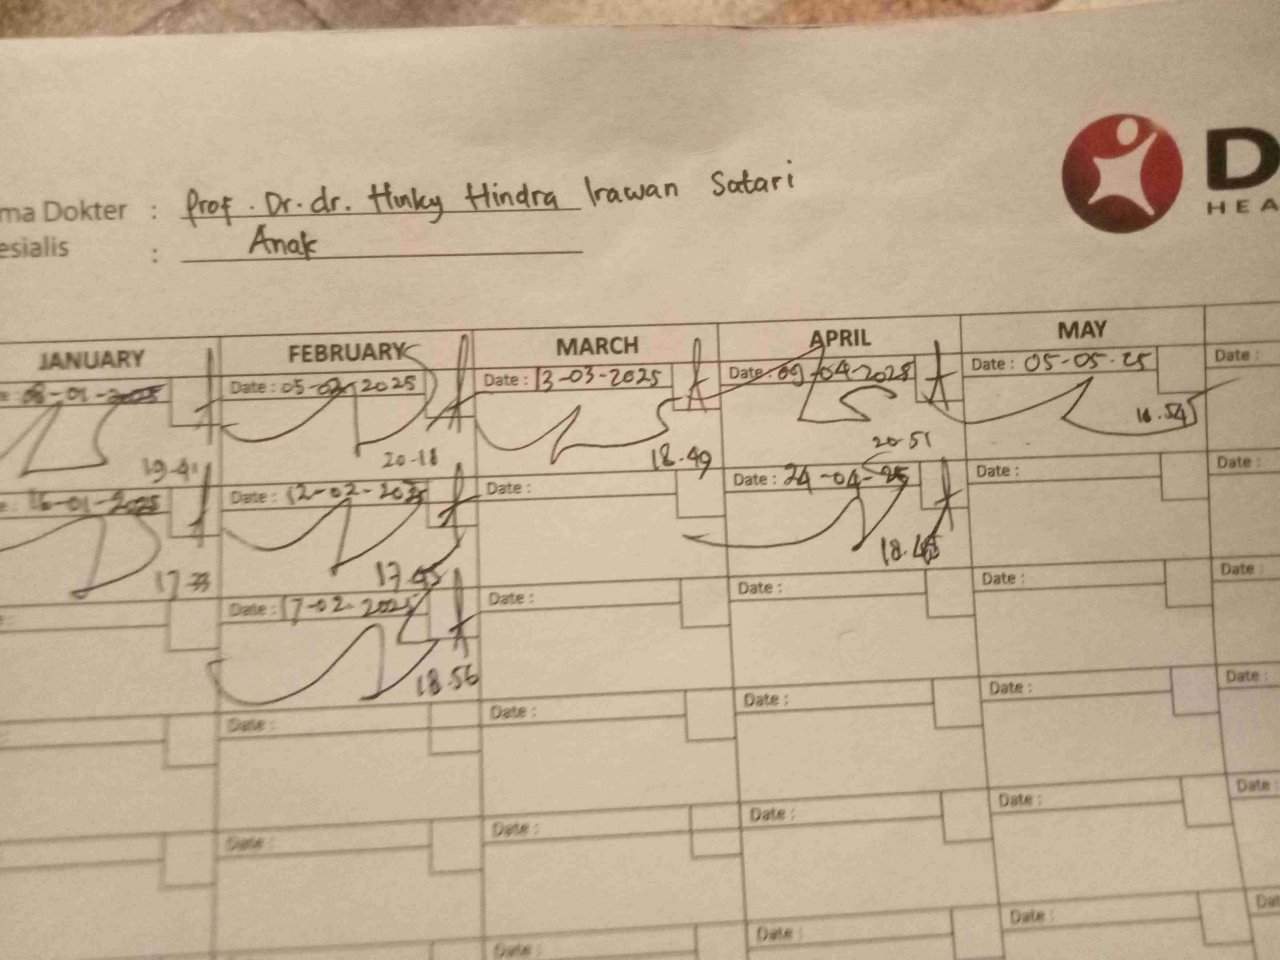 D
HEA
ma Dokter : Prof. Dr. dr. Hinky Hindra Irawan Satari
esialis : Anak
JANUARY FEBRUARY MARCH APRIL MAY
08-01-2025 Date : 05-02-2025 Date : 13-03-2025 Date : 09-04-2025 Date : 05-05-25 Date :
19.41 20.18 18.49 20.51 16.54
16-01-2025 Date : 12-02-2025 Date : Date : 24-04-25 Date : Date :
17.33 17.45 18.45
Date : 17-02-2025 Date : Date : Date : Date :
18.56
Date : Date : Date : Date : Date :
Date : Date : Date : Date : Date :
Date : Date : Date :